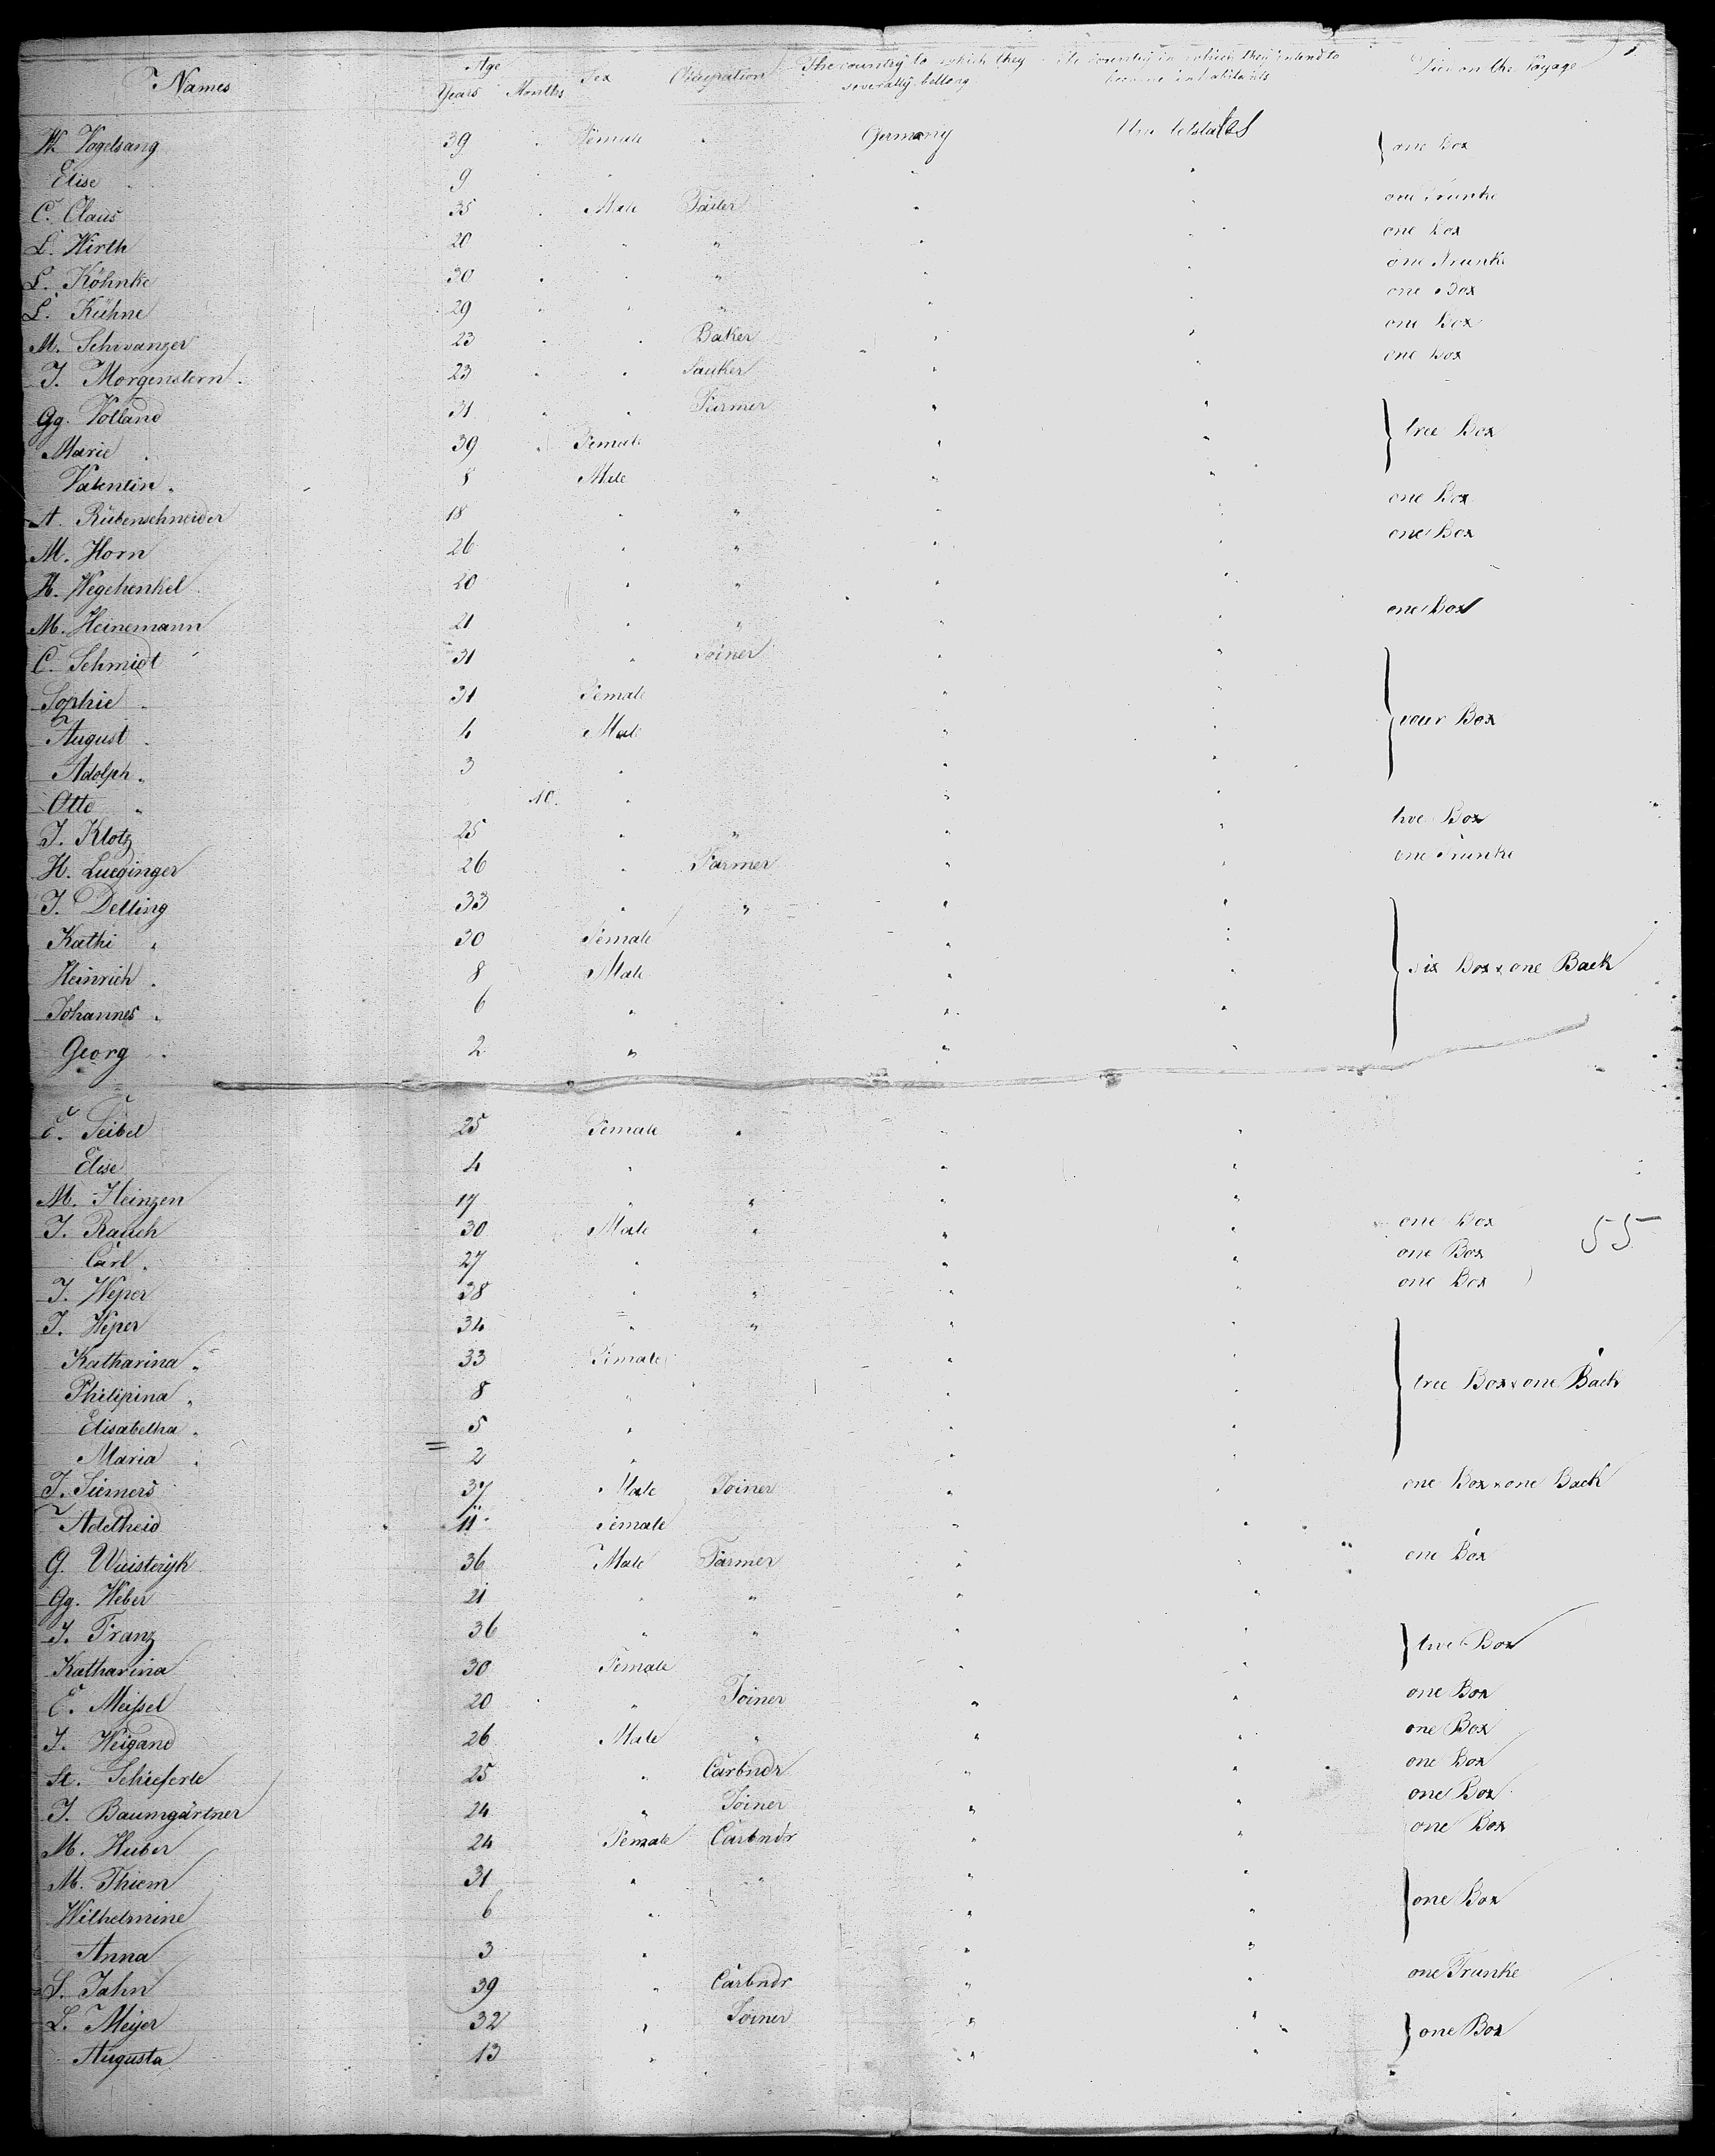 Names Age Years Months Sex Occupation The country to which they severally belong The country in which they intend to become inhabitants Died on the Voyage
W. Vogelsang 39 " Female " Germany United states } one Box
Elise " 9 " " " "
C. Claus 35 " Male Tailer " " one Trunke
L. Wirth 20 " " " " " one Box
L. Köhnke 30 " " " " " one Trunke
L. Kühne 29 " " " " " one Box
M. Schwanzer 23 " " Baker " " one Box
J. Morgenstern 23 " " " " one Box
Gg. Volland 31 " " Farmer " " } tree Box
Marie " 39 " Female " "
Valentin " 8 Male " "
A. Rübenschneider 18 " " " " one Box
M. Horn 26 " " " " one Box
H. Wegehenkel 20 " " " "
M. Heinemann 21 " " " " one Box
C. Schmidt 31 " Joiner " " } vour Box
Sophie " 31 Female " "
August " 4 Male " "
Adolph " 3 " " "
Otto " 10. " " "
J. Klotz 25 " " " " two Box
H. Lueginger 26 " Farmer " " one Trunke
J. Delling 33 " " " " } six Box & one Back
Kathi " 30 Female " "
Heinrich " 8 Male " "
Johannes " 6 " " "
Georg " 2 " " "
E. Seibel 25 Female " " "
Elise 4 " " "
M. Heinzen 17 " " " "
J. Rauch 30 Male " " " one Box 55
Carl " 27 " " " one Box
J. Weper 38 " " " " one Box
J. Weper 34 " " " " } tree Box & one Back
Katharina " 33 Female " "
Philipina " 8 " " "
Elisabetha " 5 " " "
Maria " 2 " " "
J. Siemers 37 Male Joiner " " one Box & one Back
Adelheid 11 Female " "
G. Wuisterijk 36 Male Farmer " " one Box
Gg. Weber 21 " " " "
J. Franz 36 " " " " } two Box
Katharina 30 Female " "
E. Meissel 20 " Joiner " " one Box
J. Weigand 26 Male " " " one Box
St. Schieferle 25 " Carbndr " " one Box
J. Baumgärtner 24 " Joiner " " one Box
M. Huber 24 Female Carbndr " " one Box
M. Thiem 31 " " " " } one Box
Wilhelmine 6 " " "
Anna 3 " " "
S. Jahn 39 " Carbndr " " one Trunke
L. Meyer 32 " Joiner " " } one Box
Augusta 13 " " "